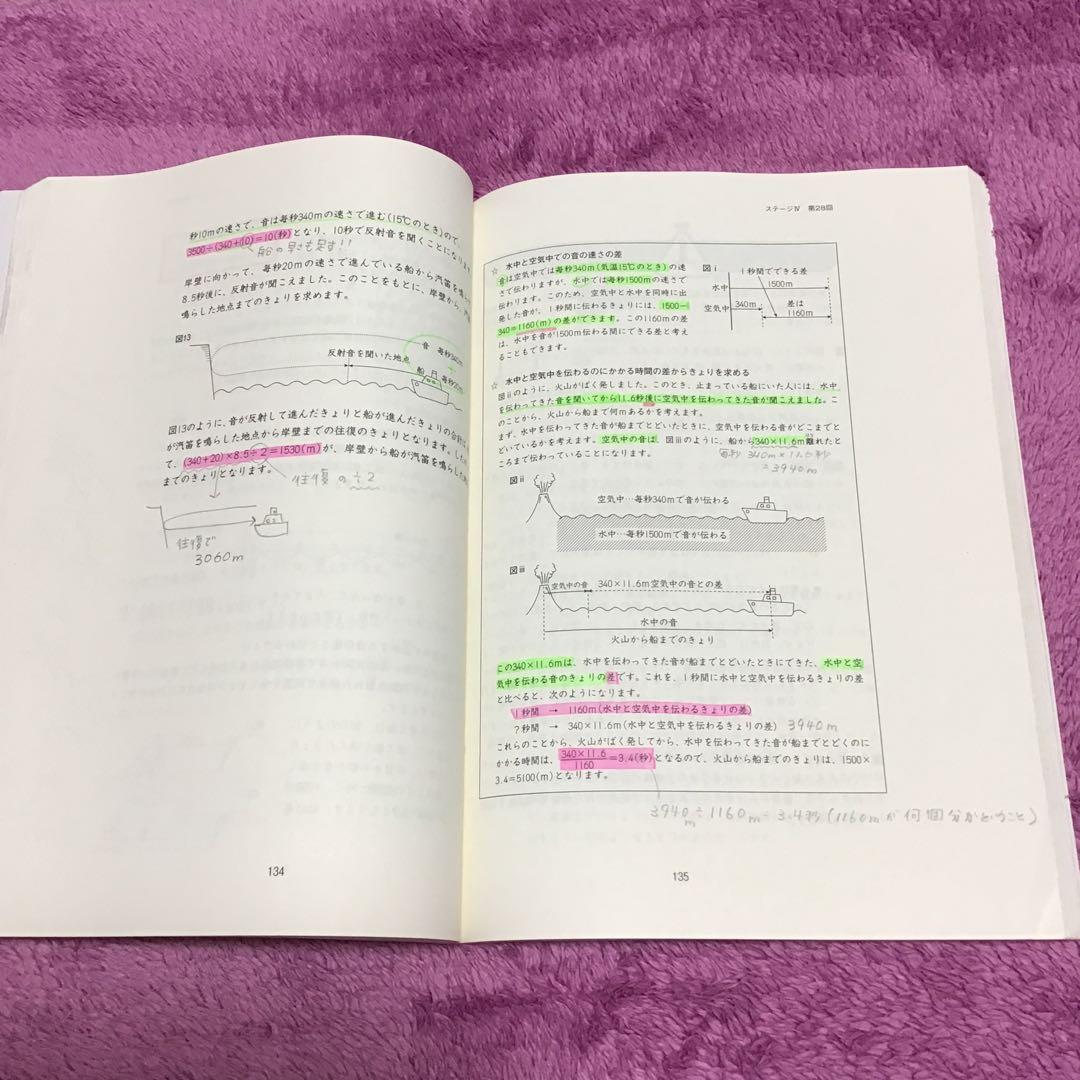 秒10mの速さで、音は毎秒340mの速さで進む(15℃のとき)ので、
3500÷(340+10)=10(秒)となり、10秒で反射音を聞くことになりま
船の早さも足す!!
岸壁に向かって、毎秒20mの速さで進んでいる船から汽笛を鳴らし
8.5秒後に、反射音が聞こえました。このことをもとに、岸壁から、汽
鳴らした地点までのきょりを求めます。
図13
音 毎秒340m
反射音を聞いた地点
船 毎秒20m
図13のように、音が反射して進んだきょりと船が進んだきょりの合計は、
が汽笛を鳴らした地点から岸壁までの往復のきょりとなります。した
て、(340+20)×8.5÷2=1530(m)が、岸壁から船が汽笛を鳴らした
までのきょりとなります。
往復の÷2
往復で
3060m
134
ステージⅣ 第28回
☆ 水中と空気中での音の速さの差
音は空気中では毎秒340m(気温15℃のとき)の速
さで伝わりますが、水中では毎秒1500mの速さで
伝わります。このため、空気中と水中を同時に出
発した音が、1秒間に伝わるきょりには、1500−
340=1160(m)の差ができます。この1160mの差
は、水中を音が1500m伝わる間にできる差と考え
ることもできます。
図ⅰ
1秒間でできる差
水中
1500m
空気中
340m
差は
1160m
☆ 水中と空気中を伝わるのにかかる時間の差からきょりを求める
図ⅱのように、火山がばく発しました。このとき、止まっている船にいた人には、水中
を伝わってきた音を聞いてから11.6秒後に空気中を伝わってきた音が聞こえました。こ
のことから、火山から船まで何mあるかを考えます。
まず、水中を伝わってきた音が船までとどいたときに、空気中を伝わる音がどこまでと
どいているかを考えます。空気中の音は、図ⅲのように、船から340×11.6m離れたと
ころまで伝わっていることになります。
毎秒340m×11.6秒
=3940m
図ⅱ
空気中…毎秒340mで音が伝わる
水中…毎秒1500mで音が伝わる
図ⅲ
空気中の音
340×11.6m空気中の音との差
水中の音
火山から船までのきょり
この340×11.6mは、水中を伝わってきた音が船までとどいたときにできた、水中と空
気中を伝わる音のきょりの差です。これを、1秒間に水中と空気中を伝わるきょりの差
と比べると、次のようになります。
1秒間 → 1160m(水中と空気中を伝わるきょりの差)
?秒間 → 340×11.6m(水中と空気中を伝わるきょりの差) 3940m
これらのことから、火山がばく発してから、水中を伝わってきた音が船までとどくのに
かかる時間は、340×11.6/1160=3.4(秒)となるので、火山から船までのきょりは、1500×
3.4=5100(m)となります。
3940m÷1160m=3.4秒(1160mが何個分かということ)
135